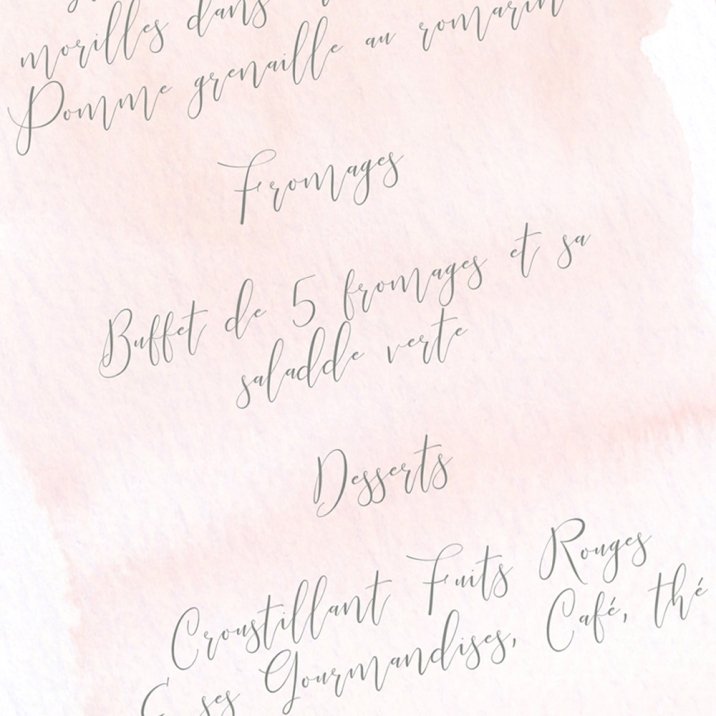 morilles dans
Pomme grenaille au romarin
Fromages
Buffet de 5 fromages et sa
saladde verte
Desserts
Croustillant Fuits Rouges
ses Gourmandises, Café, thé